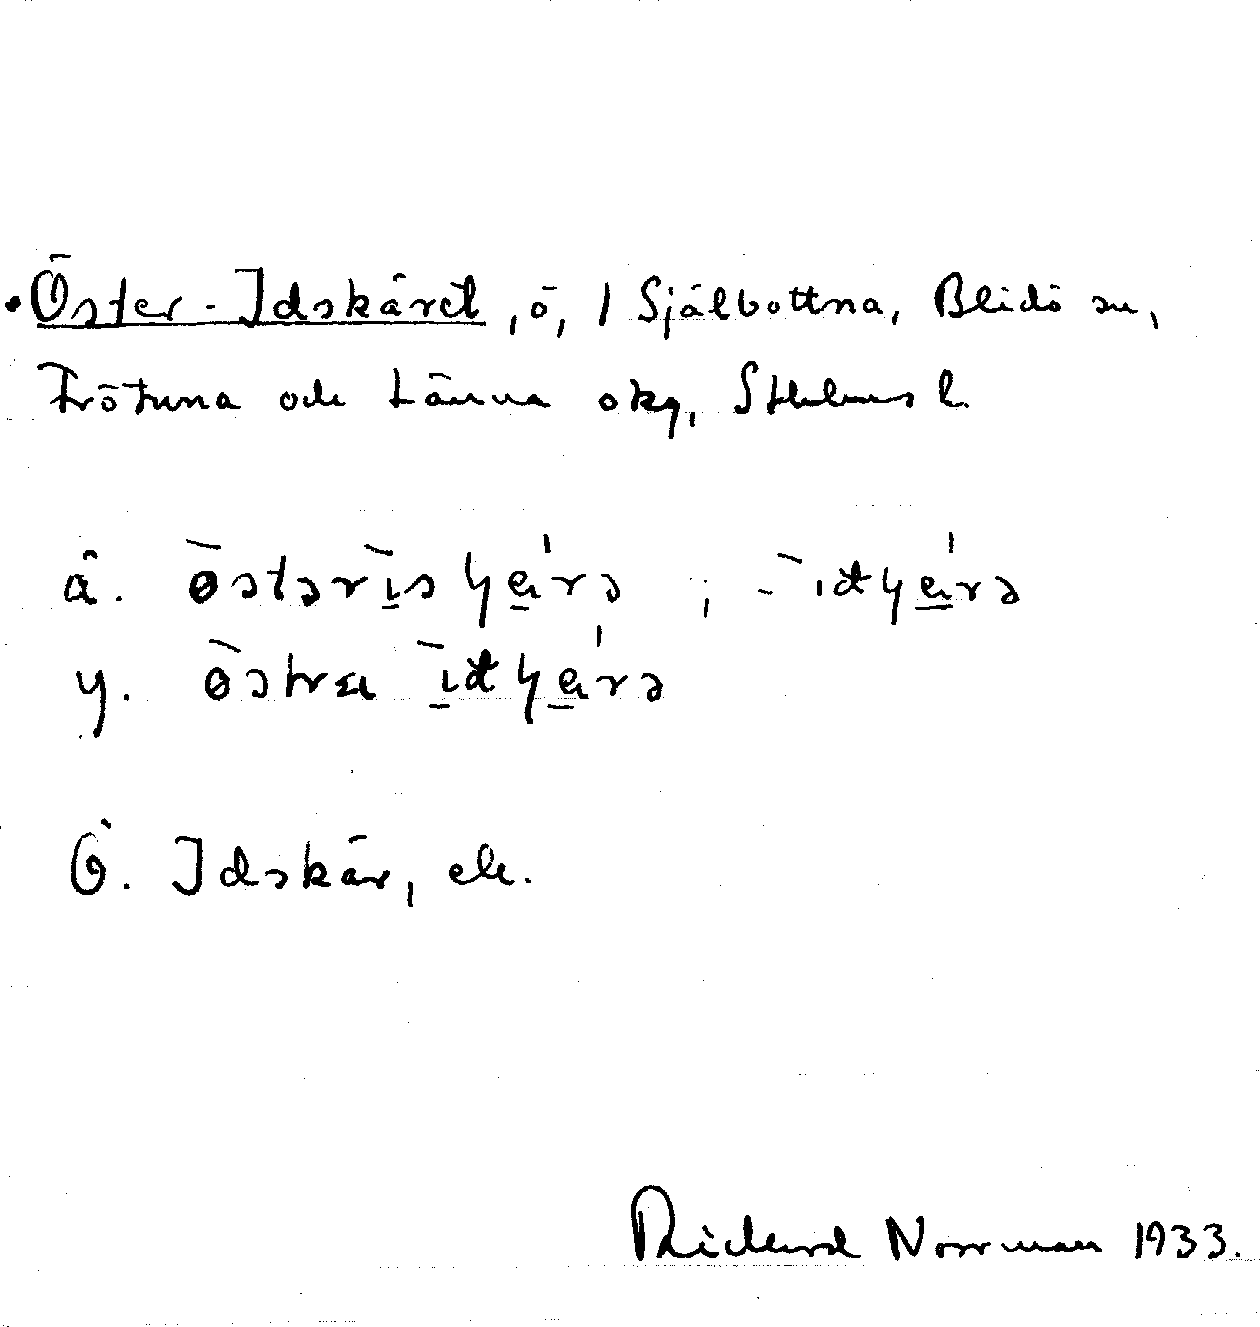 Öster-Idskäret, ö, / Själbottna, Blidö sn,
Frötuna och Länna skg, Sthlms l.
ä. östərisɥärə ; - idɥärə
y. östra idɥärə
Ö. Idskär, ek.
Rickard Norrman 1933.